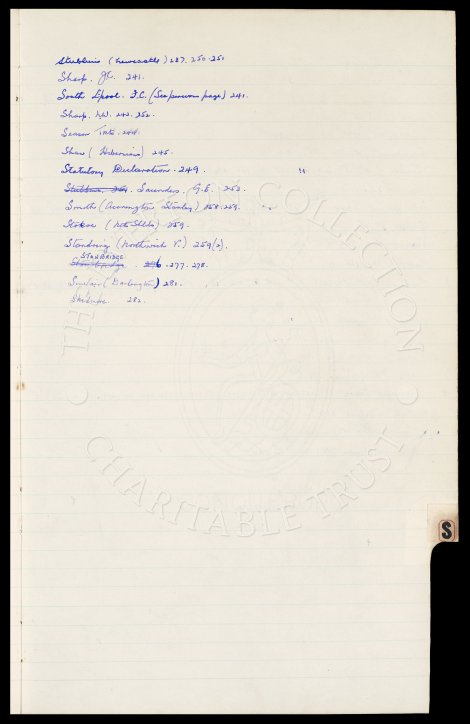 Stubbins (Newcastle) 287. 250. 251
Sharp. J.C. 241.
South Lpool. F.C. (See previous page) 241.
Sharp. N.W. 242. 252.
Season Tkts. 244.
Shaw (Hibernian) 245.
Statutory Declaration. 249.
Saunders. G.E. 252.
Smith (Accrington Stanley) 258. 259.
Stokoe (Nth Shlds) 259.
Standring (Northwich V.) 259(2).
STANBRIDGE
276. 277. 278.
(Darlington) 281.
282.
S
THE COLLECTION
CHARITABLE TRUST